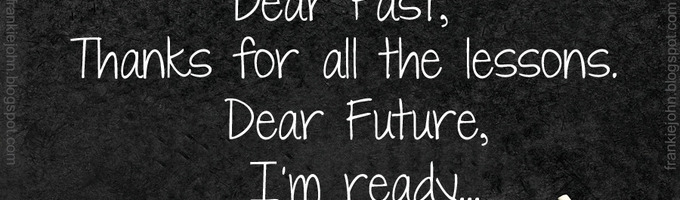 Dear Past,
Thanks for all the lessons.
Dear Future,
I'm ready...
frankiejohn.blogspot.com
frankiejohn.blogspot.com